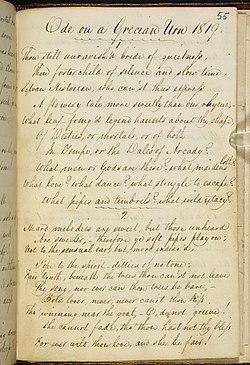 55
Ode on a Grecian Urn 1819.
1
Thou still unravish'd bride of quietness,
Thou foster child of silence and slow time,
Sylvan Historian, who canst thus express
A flowery tale more sweetly than our rhyme,
What leaf-fring'd legend haunts about thy shape
Of Deities, or mortals, or of both
In Tempe, or the Dales of Arcady?
What men or Gods are these? what maidens loth?
What love? what dance? what struggle to escape?
What pipes and timbrels? what wild extacy?
2
Heard melodies are sweet, but those unheard
Are sweeter, therefore ye soft pipes play on;
Not to the sensual ear, but, more endear'd,
Pipe to the spirit ditties of no tone;
Fair Youth, beneath the trees thou can'st not leave
Thy song, nor ever can those trees be bare,
Bold lover never, never can'st thou kiss
Tho' winning near the goal — O, do not grieve!
She cannot fade, tho' thou hast not thy bliss
For ever wilt thou love, and she be fair.